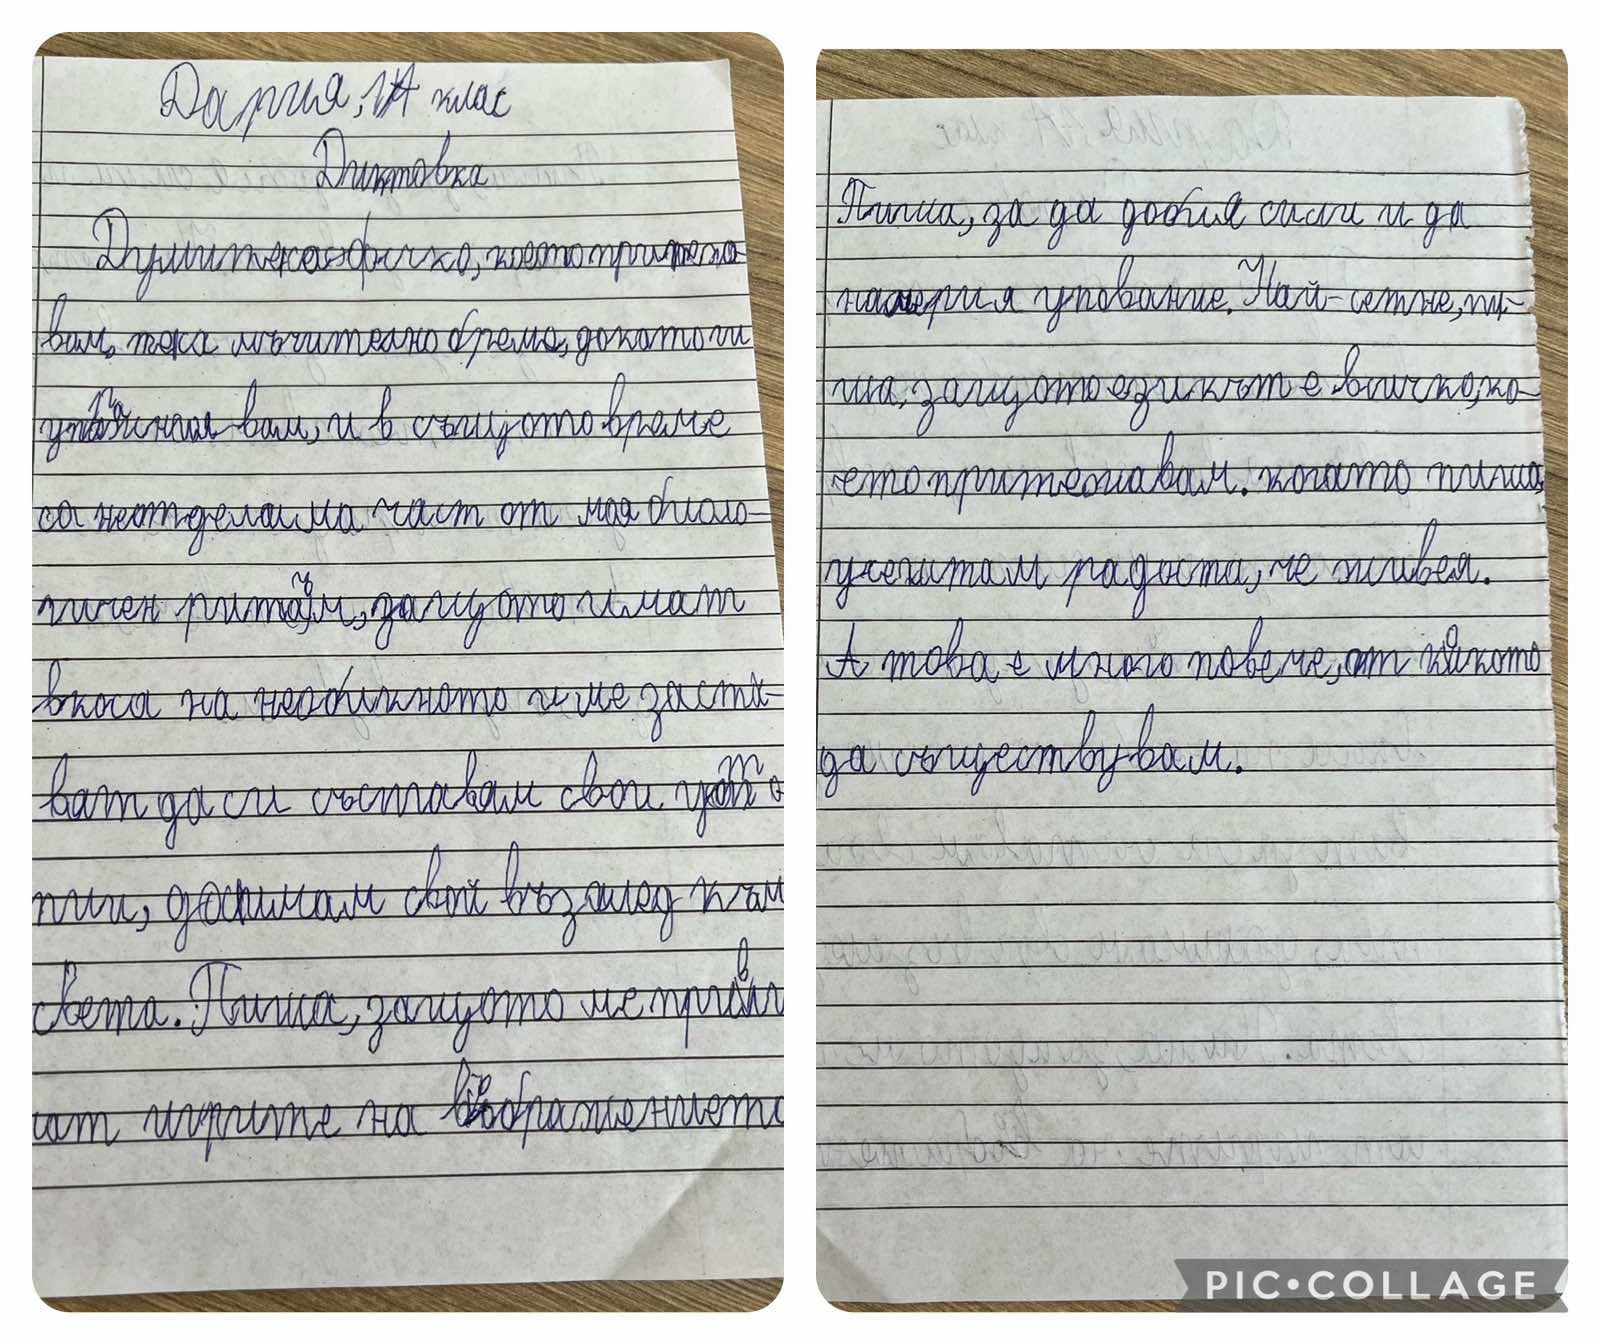 Дария, 1А клас
Диктовка
Думите са всичко, което притежа-
вам, тека мъчително бреме, докато ги
уточнявам, и в същото време
са неотделама част от моя биоло-
гичен ритъм, защото имат
вкоса на необикното и ме заста-
ват да си съставам свои уто
пии, да имам свой възглед към
света. Пиша, защото ме привли
чат игрите на въображението
Пиша, за да добия сили и да
намеря упование. Най-сетне, пи-
ша, защото езикът е всичко, ко-
ето притежавам. когато пиша,
усещам радоста, че живея.
А това е много повече, от колкото
да съществувам.
PIC•COLLAGE